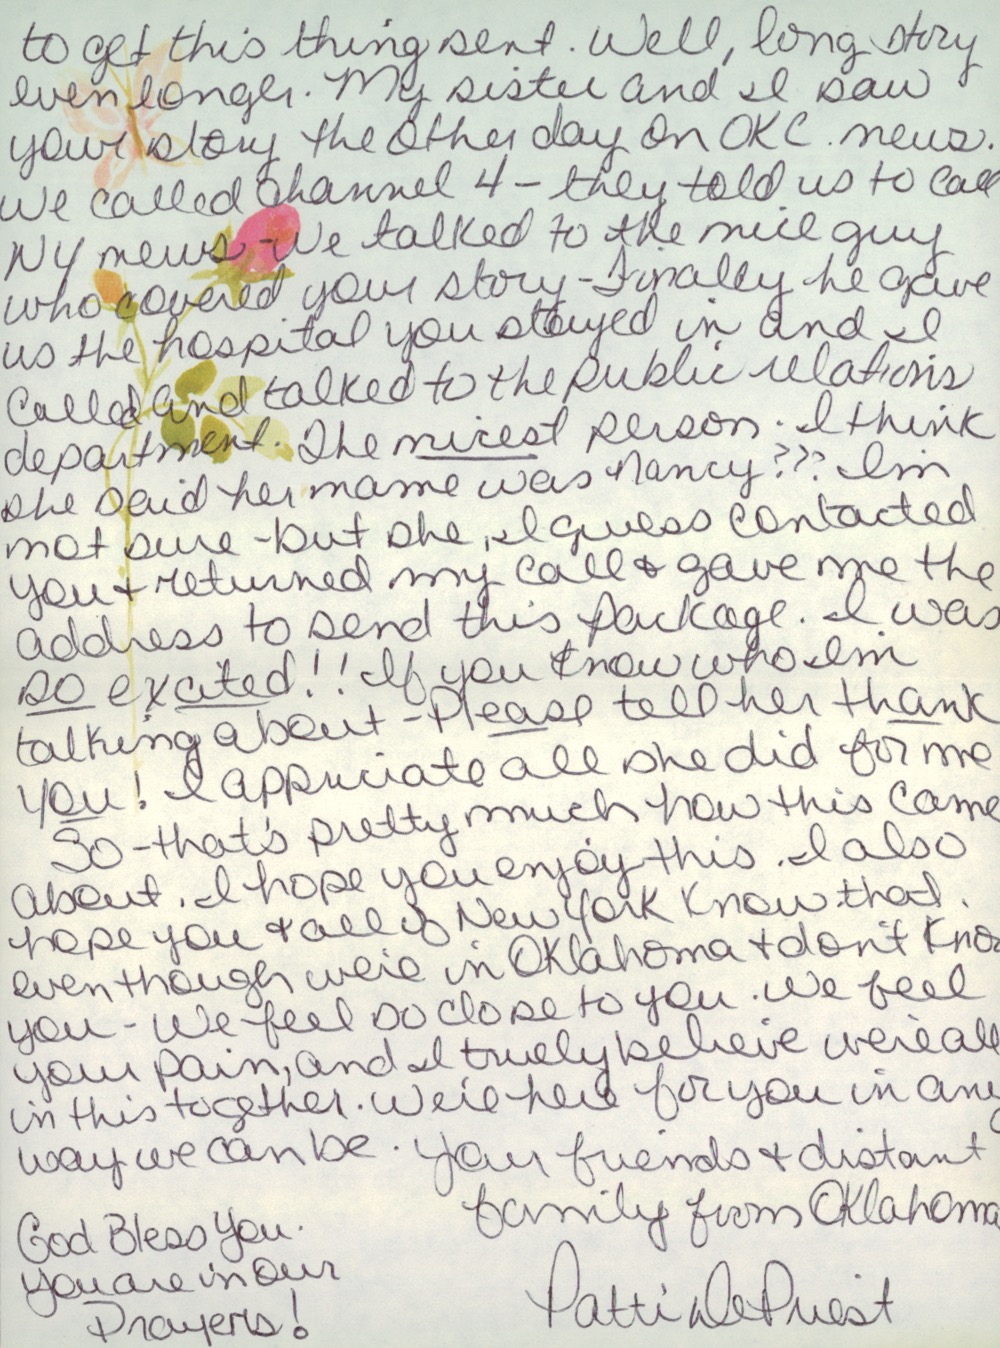 to get this thing sent. Well, long story
even longer. My sister and I saw
your story the other day on OKC. news.
We called Channel 4 - they told us to call
NY news - We talked to the nice guy
who covered your story - Finally he gave
us the hospital you stayed in and I
called and talked to the public relations
department. The nicest person. I think
she said her name was Nancy??? I'm
not sure - but she, I guess contacted
you & returned my call & gave me the
address to send this package. I was
so excited!! If you know who I'm
talking about - Please tell her thank
you! I appriciate all she did for me
So - that's pretty much how this came
about. I hope you enjoy this. I also
hope you & all of New York know that.
even though we're in Oklahoma & don't know
you - We feel so close to you. We feel
your pain, and I truely believe we're all
in this together. We're here for you in any
way we can be. Your friends & distant
family from Oklahoma
God Bless You.
You are in our
Prayers!
Patti DePriest